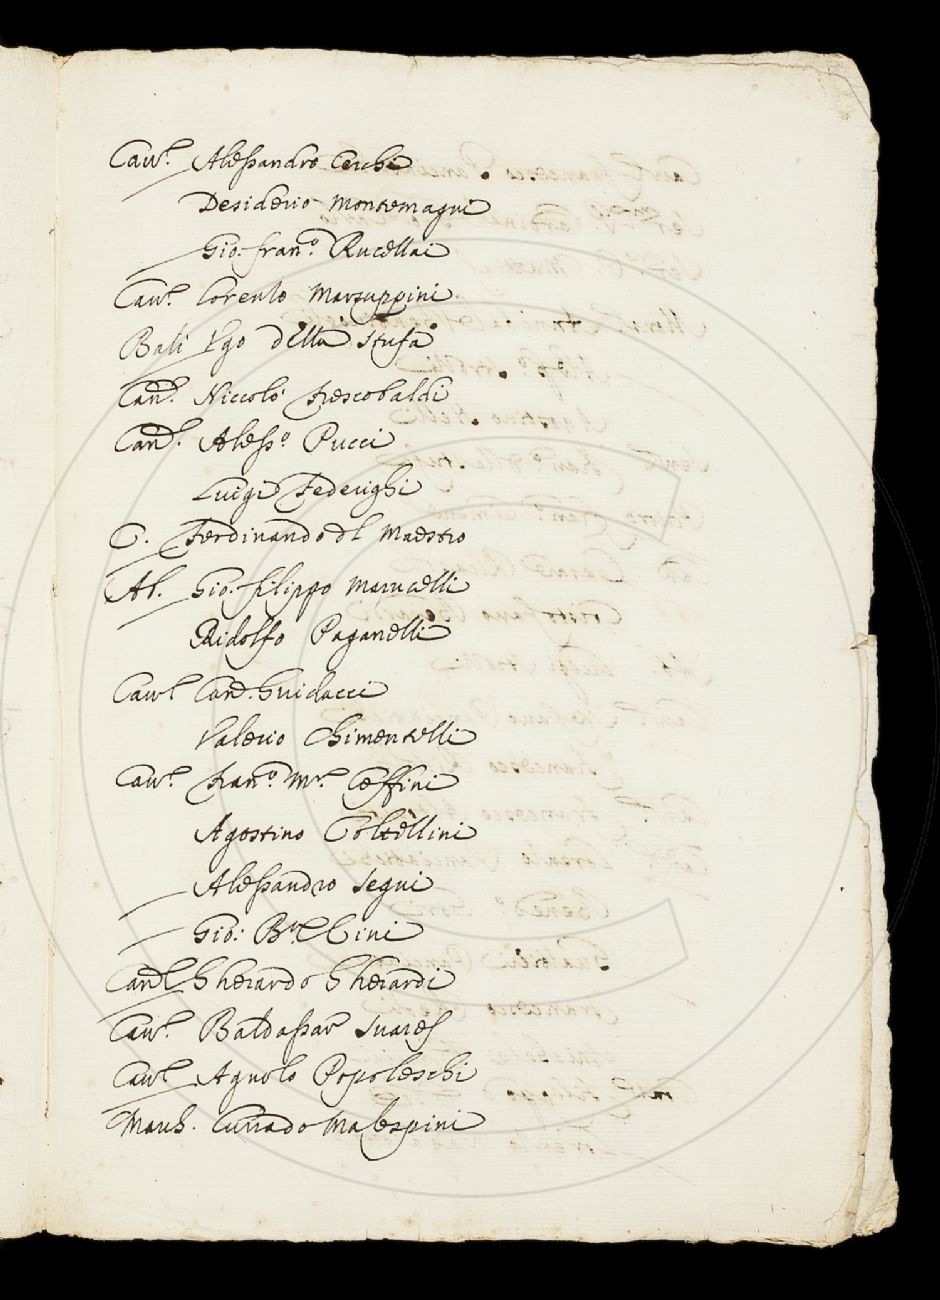 Cau.r Alessandro Cerchi
Desiderio Montemagni
Gio: Fran.o Rucellai
Cau.r Lorenzo Marsuppini
Balì Vgo della Stufa
Can.co Niccolò Frescobaldi
Can.co Aless.o Pucci
Luigi Federighi
C. Ferdinando del Maestro
Al. Gio: Filippo Marucelli
Ridolfo Paganelli
Cau.r Card. Guidacci
Valerio Chimentelli
Cau.r Fran.o M.a Ceffini
Agostino Coltellini
Alessandro Segni
Gio: B.a Cini
Can.co Gherardo Gherardi
Cau.r Baldassar Suares
Cau.r Agnolo Popoleschi
March. Currado Malespini